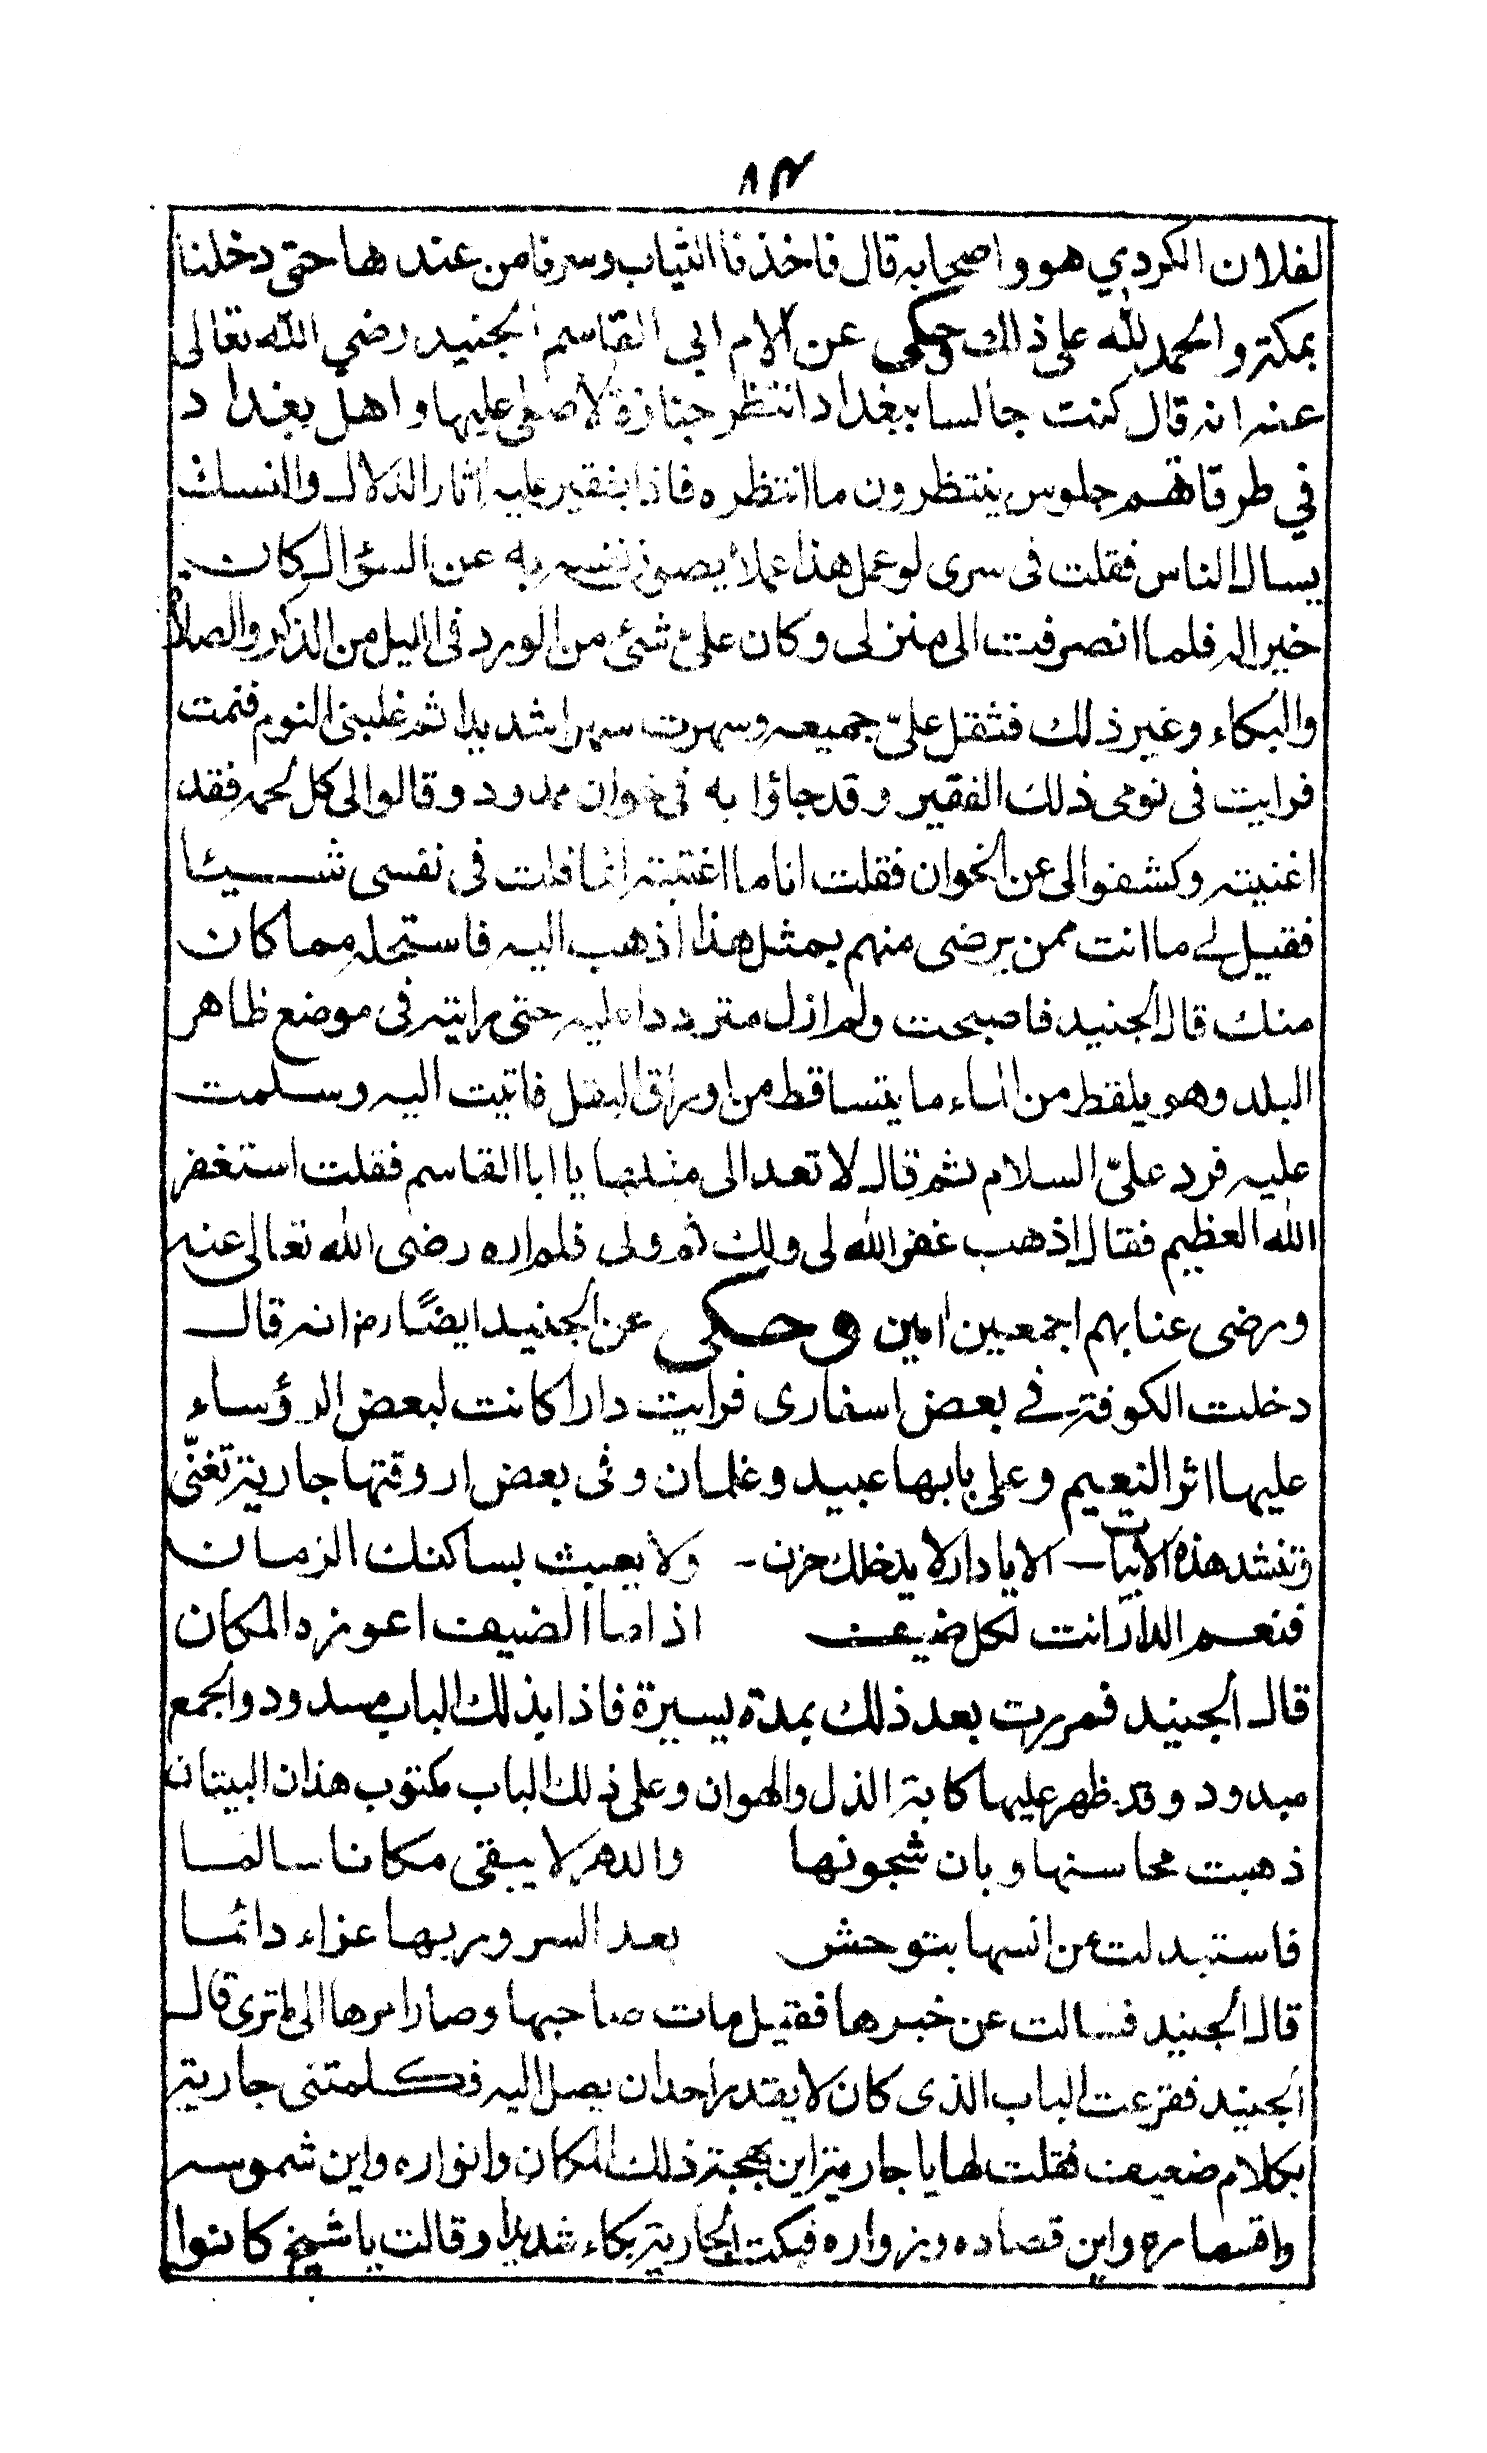 ٨٣
لفلان الكردي هو واصحابه قال فاخذنا الثياب وسرنا من عندها حتى دخلنا
بمكة والحمد لله على ذالك وحكى عن الامام ابي القاسم الجنيد رضي الله تعالى
عنه انه قال كنت جالسا ببغداد انتظر جنازة لاصلى عليها واهل بغداد
في طرقاتهم جلوس ينتظرون ما انتظره فاذا بفقير عليه اثار الذلال والنسك
يسال الناس فقلت فى سرى لو عمل هذا عملا يصون نفسه به عن السؤال كان
خيرا له فلما انصرفت الى منزلى وكان علىّ شئ من الورد فى الليل من الذكر والصلاة
والبكاء وغير ذلك فثقل علىّ جميعه وسهرت سهرا شديدا ثم غلبنى النوم فنمت
فرايت فى نومى ذلك الفقير وقد جاؤا به فى خوان ممدود وقالوا لى كل لحمه فقد
اغتبته وكشفوا لى عن الخوان فقلت انا ما اغتبته انما قلت فى نفسى شيئا
فقيل لے ما انت ممن يرضى منهم بمثل هذا اذهب اليه فاستحله مما كان
منك قال الجنيد فاصبحت ولم ازل مترددا عليه حتى رايته فى موضع ظاهر
البلد وهو يلقط من الماء ما يتساقط من اوراق البقل فاتيت اليه وسلمت
عليه فرد علىّ السلام ثم قال لا تعد الى مثلها يا ابا القاسم فقلت استغفر
الله العظيم فقال اذهب غفر الله لى ولك ثم ولى فلم اره رضى الله تعالى عنه
ورضى عنا بهم اجمعين امين وحكى عن الجنيد ايضًا رض انه قال
دخلت الكوفة فے بعض اسفارى فرايت دارا كانت لبعض الرؤساء
عليها اثر النعيم وعلى بابها عبيد وغلمان وفى بعض اروقتها جارية تغنّى
وتنشد هذه الابيات الا يا دار لا يدخلك حزن - ولا يعبث بساكنك الزمان
فنعم الدار انت لكل ضيف اذا ما الضيف اعوزه المكان
قال الجنيد فمررت بعد ذلك بمدة يسيرة فاذا بذلك الباب مسدود والجمع
مبدود وقد ظهر عليها كابة الذل والهوان وعلى ذلك الباب مكتوب هذان البيتان
ذهبت محاسنها وبان شجونها والدهر لا يبقى مكانا سالما
فاستبدلت عن انسها بتوحش بعد السرور بها عزاء دائما
قال الجنيد فسالت عن خبرها فقيل مات صاحبها وصار امرها الى ما ترى قال
الجنيد فقرعت الباب الذى كان لا يقدر احد ان يصل اليه فكلمتنى جارية
بكلام ضعيف فقلت لها يا جارية اين بهجة ذلك المكان وانواره واين شموسه
واقماره واين قصاده وزواره فبكت الجارية بكاء شديدا وقالت يا شيخ كانوا